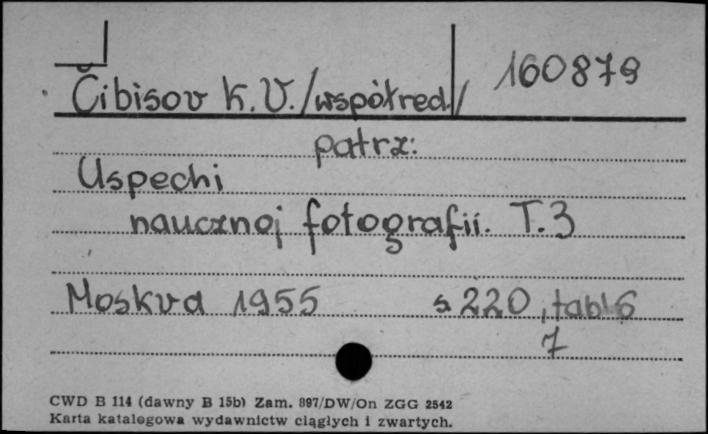 Čibisov K.V./współred/ 160879
patrz:
Uspechi
naucznoj fotografii. T.3
Moskva 1955 s 220, tabl 6
7
CWD B 114 (dawny B 15b) Zam. 897/DW/On ZGG 2542
Karta katalogowa wydawnictw ciągłych i zwartych.